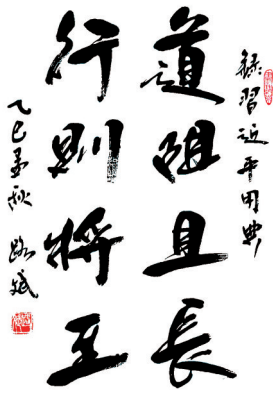 錄習近平用典
道阻且長
行則將至
乙巳孟秋 路斌